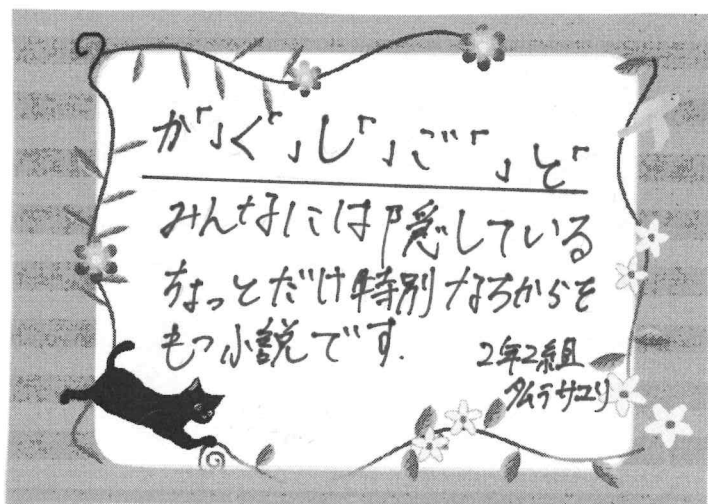 か「」く「」し「」ご「」と「
みんなには隠している
ちょっとだけ特別なちからを
もつ小説です.
2年2組
タムラサユリ